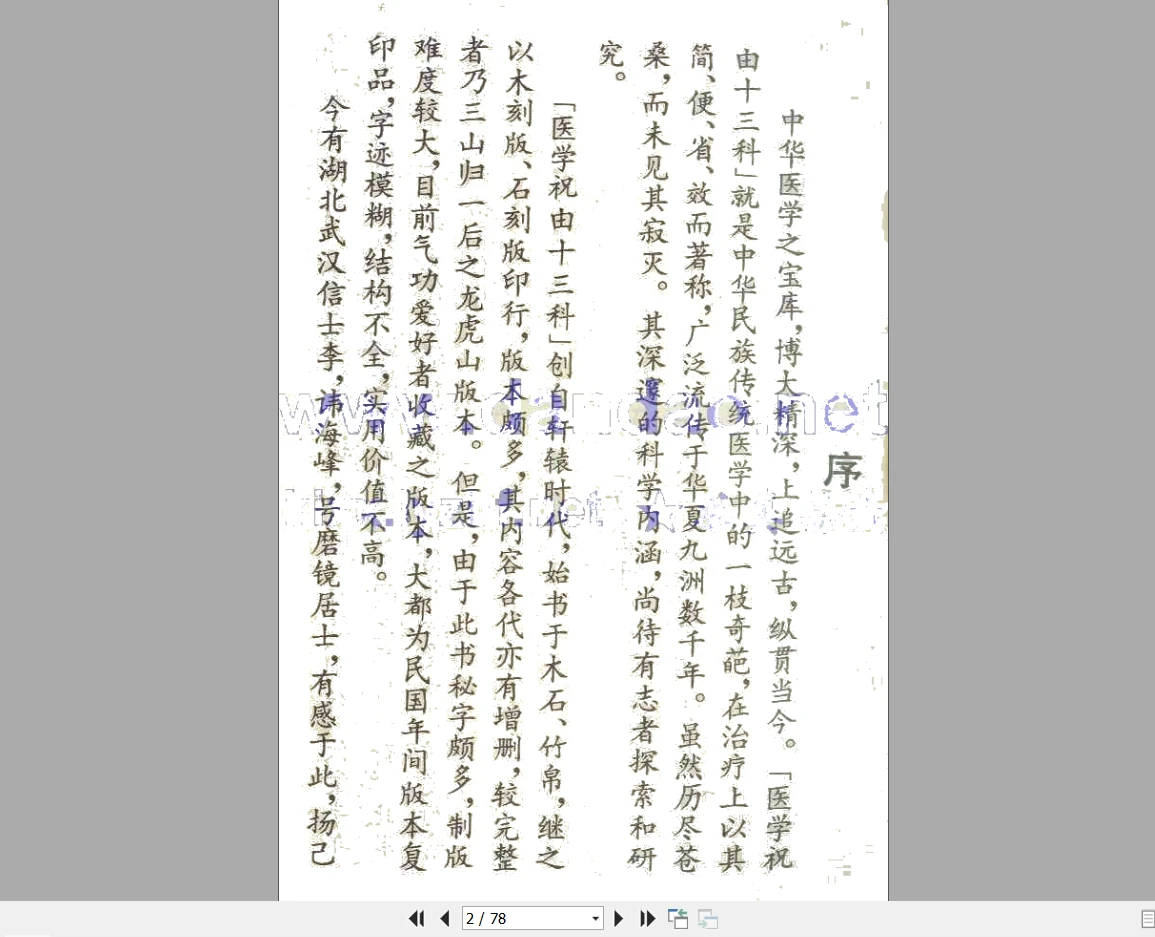 序
中华医学之宝库，博大精深，上追远古，纵贯当今。「医学祝
由十三科」就是中华民族传统医学中的一枝奇葩，在治疗上以其
简、便、省、效而著称，广泛流传于华夏九洲数千年。虽然历尽苍
桑，而未见其寂灭。其深邃的科学内涵，尚待有志者探索和研
究。
「医学祝由十三科」创自轩辕时代，始书于木石、竹帛，继之
以木刻版、石刻版印行，版本颇多，其内容各代亦有增删，较完整
者乃三山归一后之龙虎山版本。但是，由于此书秘字颇多，制版
难度较大，目前气功爱好者收藏之版本，大都为民国年间版本复
印品，字迹模糊，结构不全，实用价值不高。
今有湖北武汉信士李，讳海峰，号磨镜居士，有感于此，扬己
2 / 78